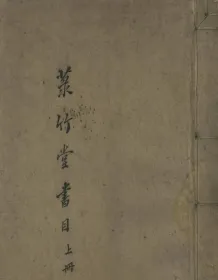 菉竹堂書目上冊